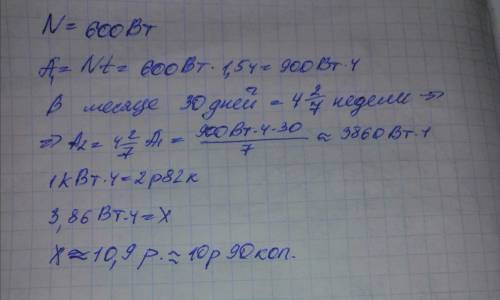 N = 600Вт
A₁ = Nt = 600Вт · 1,5ч = 900Вт·ч
В месяце 30 дней = 4 2/7 недели ⇒
⇒ A₂ = 4 2/7 A₁ = 900Вт·ч·30/7 ≈ 3860Вт·ч
1кВт·ч = 2р82к
3,86Вт·ч = X
X ≈ 10,9 р. ≈ 10р 90коп.